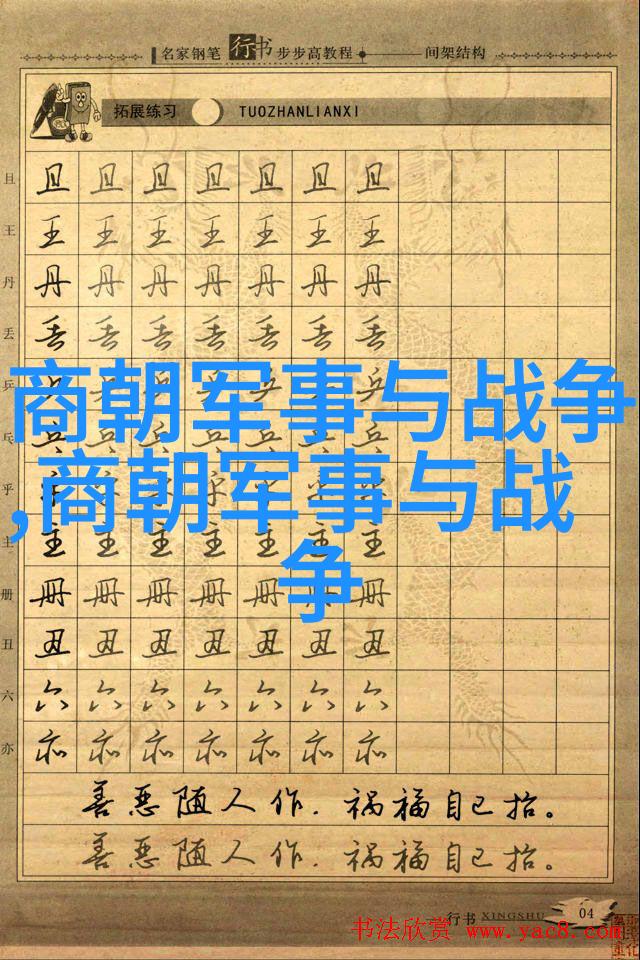 名家钢笔 行书 步步高教程 间架结构
拓展练习 TUOZHANLIANXI
且 且 且 且 且 且 且 且
王 王 王 王 王 王 王 王
丹 丹 丹 丹 丹 丹 丹 丹
丢 丢 丢 丢 丢 丢 丢 丢
商朝军事与战争
,商朝军事与战
争
乒 乒 乒 乒 乒 乒 乒
乓 乓 乓 乓 乓 乓 乓 乓
乎
主 主 主 主 主 主 主 主
册 册 册 册 册 册 册 册
丑 丑 丑 丑 丑 丑 丑 丑
六 六 六 六 六 六 六 六
亦 亦 亦 亦 亦 亦 亦 亦
善恶随人作，祸福自己招。
善恶随人作，祸福自己招。
行书 XINGSHU 04
书法欣赏 www.yac8.com